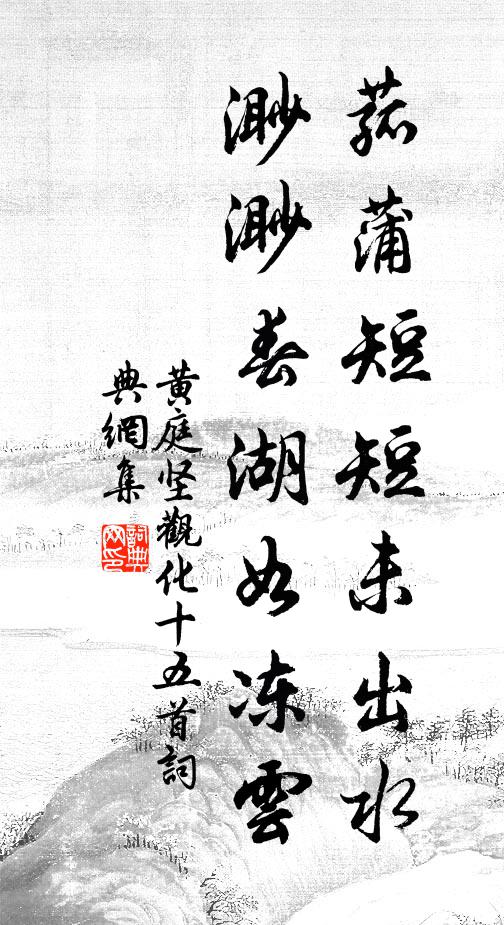 菰蒲短短未出水
渺渺春湖如冻雲
黄庭坚觀化十五首詞
典網集
詞典
网印